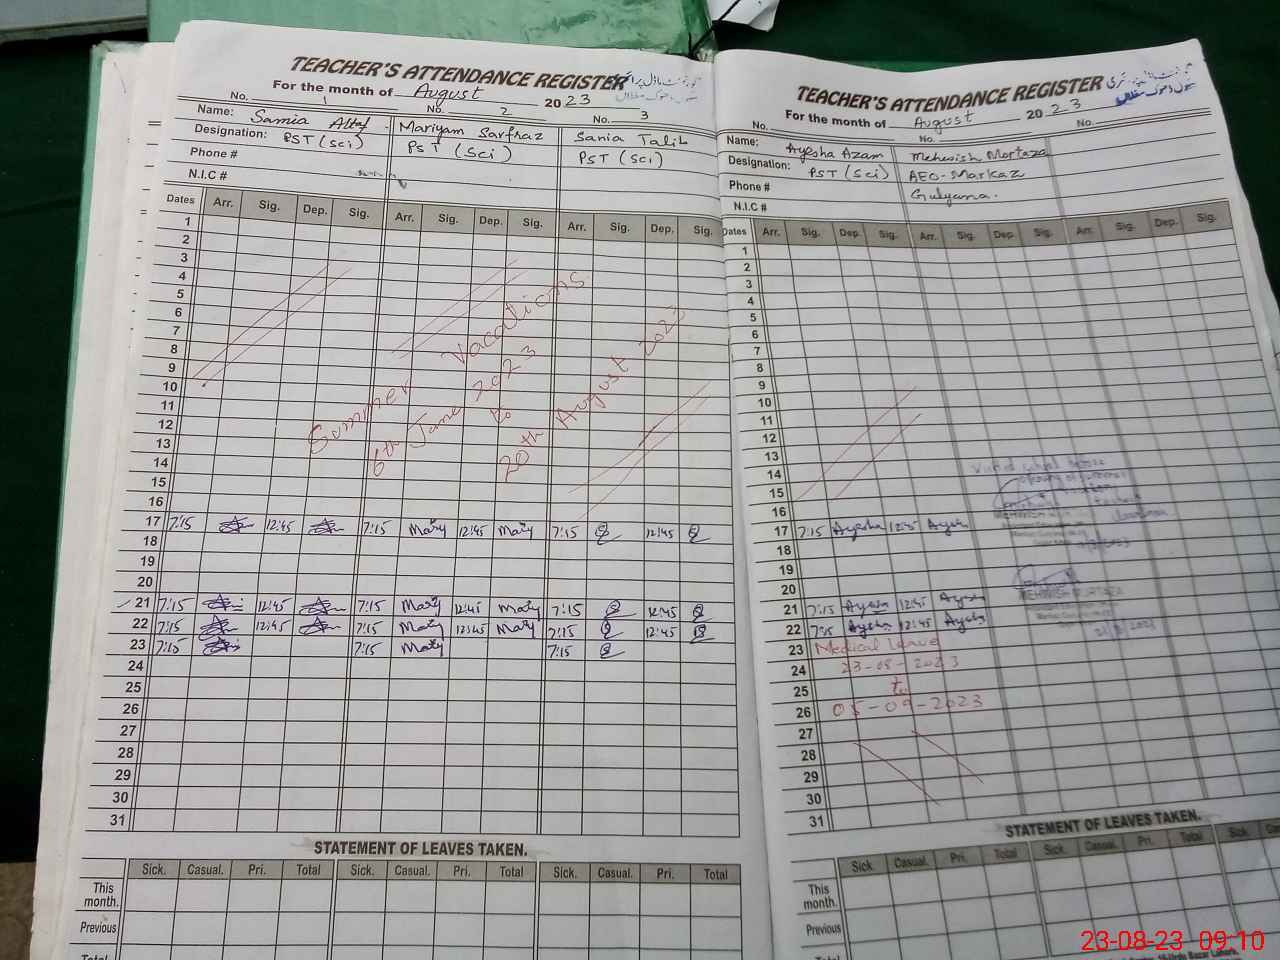 TEACHER'S ATTENDANCE REGISTER
For the month of August 2023
No. 1 No. 2 No. 3
Name: Samia Altaf Mariyam Sarfraz Sania Talib
Designation: PST (Sci) PST (Sci) PST (Sci)
Phone #
N.I.C #
Dates Arr. Sig. Dep. Sig. Arr. Sig. Dep. Sig. Arr. Sig. Dep. Sig.
1
2
3
4
5
6
7
8
9
10
11
12
13
14
15
16
Summer Vacations
6th June 2023
to
20th August 2023
17 7:15 12:45 7:15 Mary 12:45 Mary 7:15 12:45
18
19
20
21 7:15 12:45 7:15 Mary 12:45 Mary 7:15 12:45
22 7:15 12:45 7:15 Mary 12:45 Mary 7:15 12:45
23 7:15 7:15 Mary 7:15
24
25
26
27
28
29
30
31
STATEMENT OF LEAVES TAKEN.
Sick. Casual. Pri. Total Sick. Casual. Pri. Total Sick. Casual. Pri. Total
This month.
Previous
Total
TEACHER'S ATTENDANCE REGISTER
For the month of August 2023
No. No. No.
Name: Ayesha Azam Mehwish Mortaza
Designation: PST (Sci) AEO-Markaz
Phone # Gulyana.
N.I.C #
Dates Arr. Sig. Dep. Sig. Arr. Sig. Dep. Sig. Arr. Sig. Dep. Sig.
1
2
3
4
5
6
7
8
9
10
11
12
13
14
15
16
17 7:15 Ayesha 12:45 Ayesha
18
19
20
21 7:15 Ayesha 12:45 Ayesha
22 7:15 Ayesha 12:45 Ayesha
23 Medical Leave
24 23-08-2023
25 to
26 05-09-2023
27
28
29
30
31
Visited school before
MEHWISH MORTAZA
STATEMENT OF LEAVES TAKEN.
Sick. Casual. Pri. Total Sick. Casual. Pri. Total Sick.
This month.
Previous
Total
23-08-23 09:10